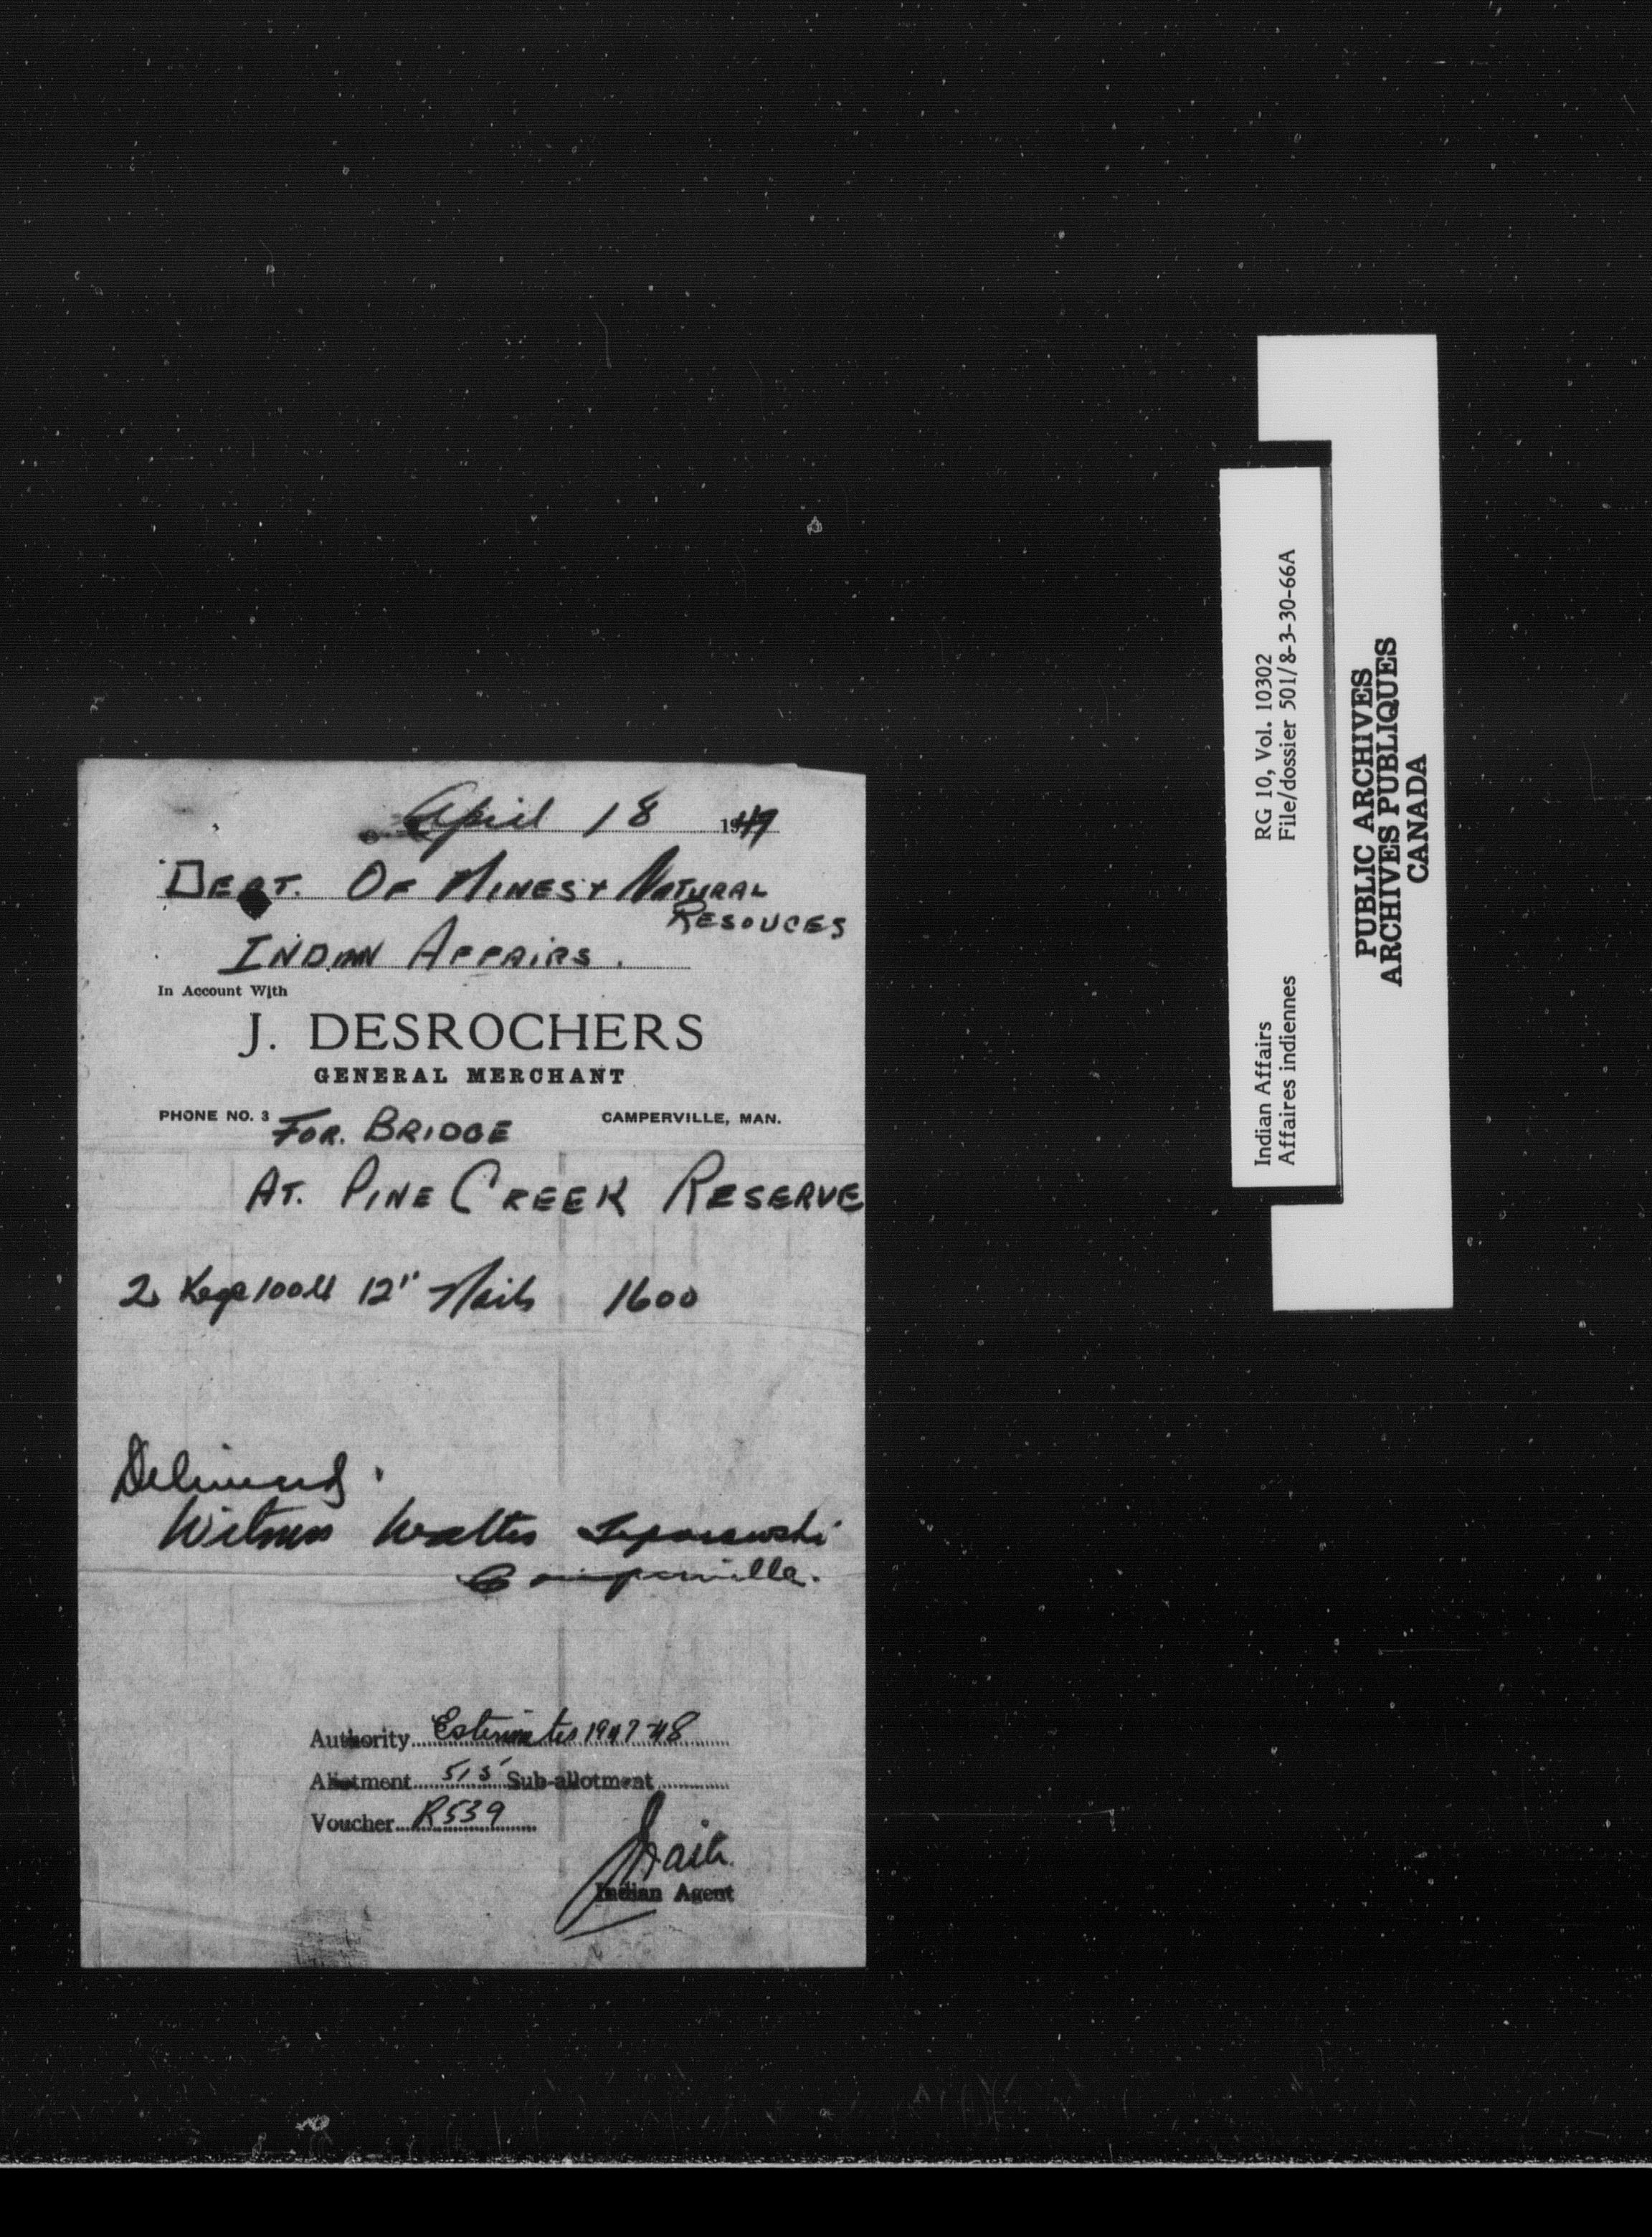 April 18 1949
DEPT. OF MINES + NATURAL
RESOUCES
INDIAN AFFAIRS.
In Account With
J. DESROCHERS
GENERAL MERCHANT
PHONE NO. 3
CAMPERVILLE, MAN.
FOR. BRIDGE
AT. PINE CREEK RESERVE
2 Kegs 100 12" Nails 1600
Delivered.
Witness Walter
Camperville.
Authority Estimates 1947-48
Allotment 515 Sub-allotment
Voucher R539
Indian Agent
Indian Affairs RG 10, Vol. 10302
Affaires indiennes File/dossier 501/8-3-30-66A
PUBLIC ARCHIVES
ARCHIVES PUBLIQUES
CANADA